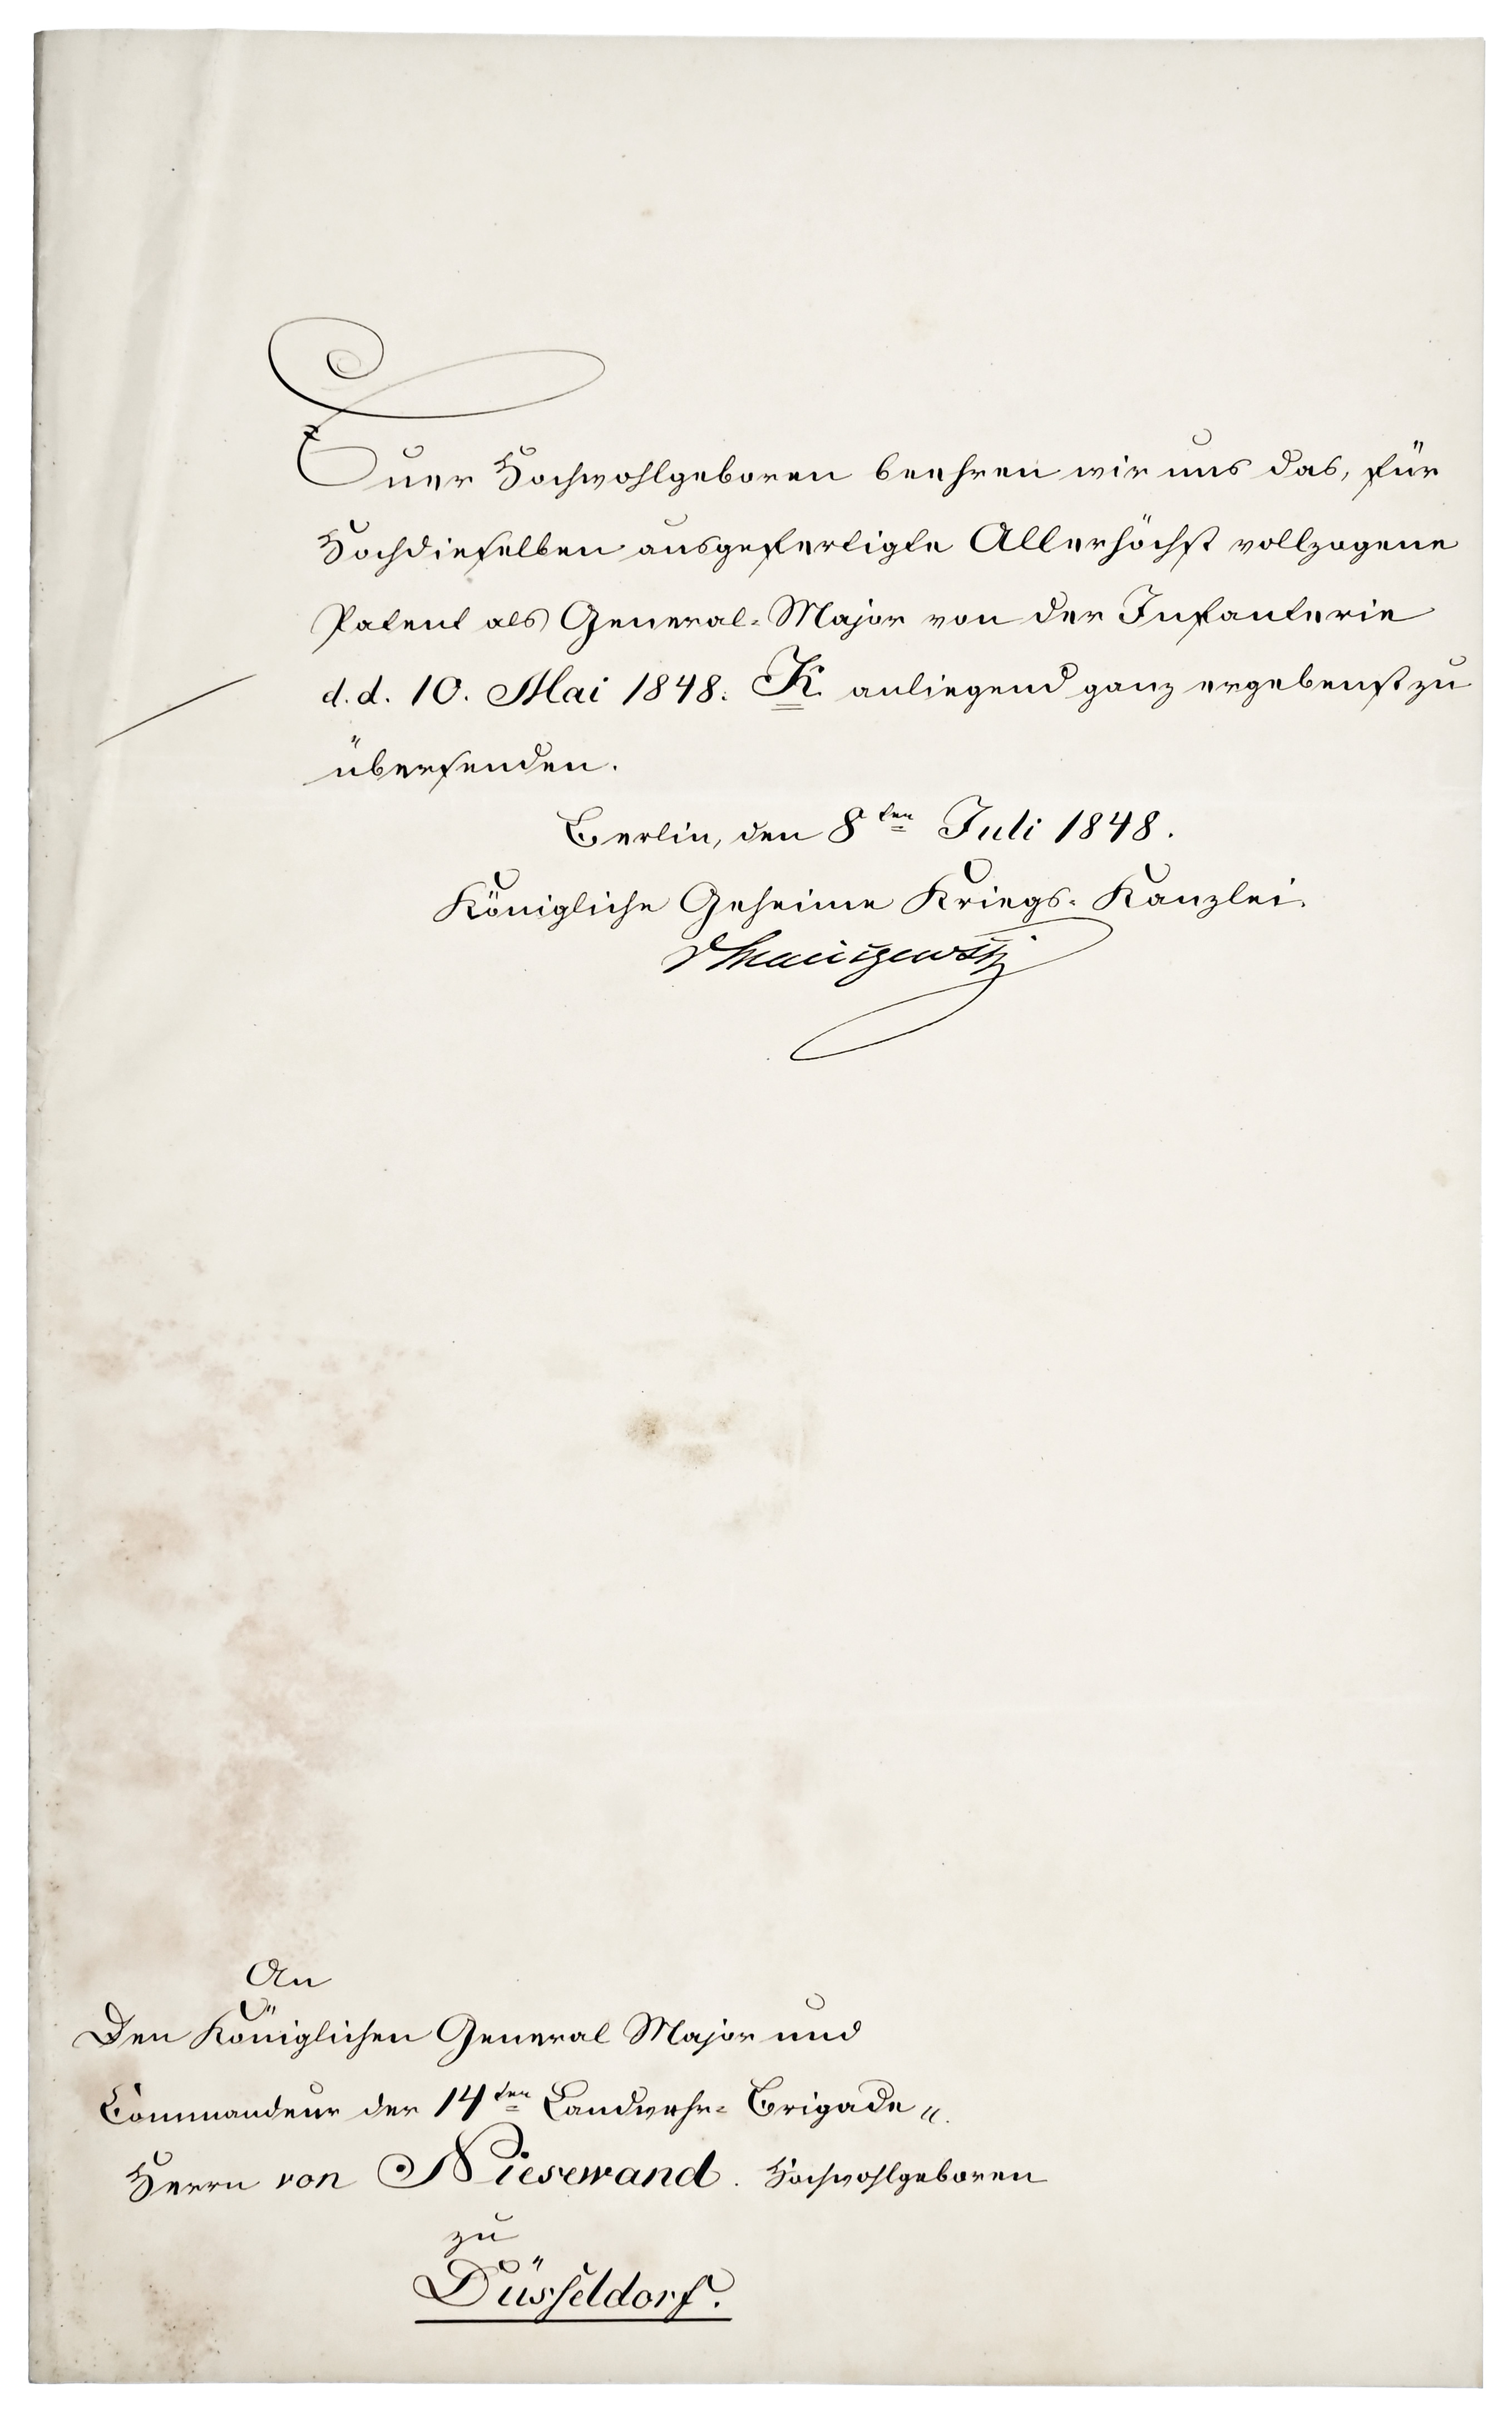 Euer Hochwohlgeboren beehren wir uns das, für
Hochdieselben ausgefertigte Allerhöchst vollzogene
Patent als General-Major von der Infanterie
d. d. 10. Mai 1848. K. anliegend ganz ergebenst zu
übersenden.
Berlin, den 8ten Juli 1848.
Königliche Geheime Kriegs-Kanzlei.
An
Den Königlichen General Major und
Commandeur der 14ten Landwehr-Brigade
Herrn von Niesewand. Hochwohlgeboren
zu
Düsseldorf.